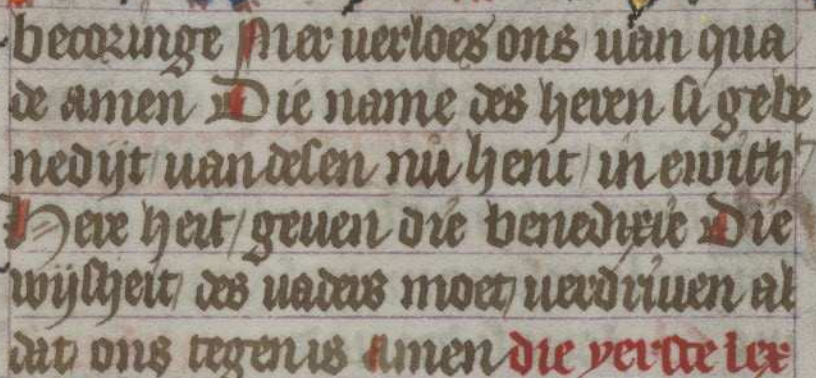 becoringe Mer verloes ons uan qua
de amen Die name des heren si gebe
nedijt uan desen nu hent in ewich'
Here heit geuen die benedixie Die
wijsheit des uaders moet uerdriuen al
dat ons tegen is Amen die yerste lex